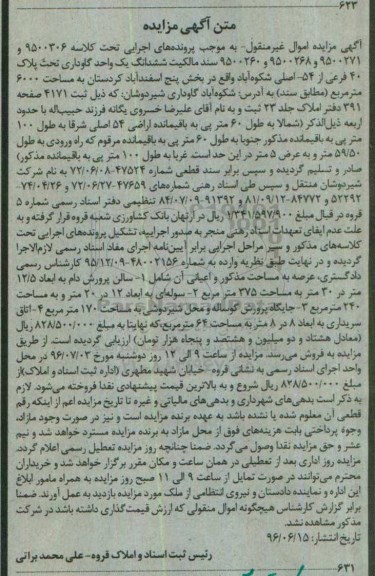 ۶۲۳
متن آگهی مزایده
آگهی مزایده اموال غیرمنقول- به موجب پرونده‌های اجرایی تحت کلاسه ۹۵۰۰۳۰۶ و
۹۵۰۰۲۷۱ و ۹۵۰۰۲۶۸ و ۹۵۰۰۲۶۰ سند مالکیت ششدانگ یک واحد گاوداری تحت پلاک
۴۰ فرعی از ۵۴- اصلی شکوه‌آباد واقع در بخش پنج اسفندآباد کردستان به مساحت ۶۰۰۰
مترمربع (مطابق سند) به آدرس: شکوه‌آباد گاوداری شیردوشان: که ذیل ثبت ۴۱۷۱ صفحه
۳۹۱ دفتر املاک جلد ۲۳ ثبت و به نام آقای علیرضا خسروی یگانه فرزند حبیب‌اله با حدود
اربعه ذیل‌الذکر (شمالا به طول ۶۰ متر پی به باقیمانده اراضی ۵۴ اصلی شرقا به طول ۱۰۰
متر پی به باقیمانده مذکور جنوبا به طول ۶۰ متر پی به باقیمانده مرقوم که راه ورودی به طول
۵۹/۵۰ متر و به عرض ۵ متر در این حد است غربا به طول ۱۰۰ متر پی به باقیمانده مذکور)
صادر و تسلیم گردیده و سپس برابر سند قطعی شماره ۴۷۵۲۴-۷۲/۰۶/۰۸ به نام شرکت
شیردوشان منتقل و سپس طی اسناد رهنی شماره‌های ۴۷۶۵۹-۷۲/۰۶/۲۷ و ۷۴/۰۴/۲۶-
۵۲۲۹۲ و ۸۴۷۷۲-۸۱/۰۹/۱۲ و ۹۱۳۹۲-۸۴/۰۷/۰۹ تنظیمی دفتر اسناد رسمی شماره ۵
قروه در قبال مبلغ ۱/۳۴۱/۵۹۷/۹۰۰ ریال در ارتهان بانک کشاورزی شعبه قروه قرار گرفته و به
علت عدم ایفای تعهدات اسناد رهنی منجر به صدور اجراییه، تشکیل پرونده‌های اجرایی تحت
کلاسه‌های مذکور و سیر مراحل اجرایی برابر آیین‌نامه اجرای مفاد اسناد رسمی لازم‌الاجرا
گردیده و در نهایت طبق نظریه وارده به شماره ۴۸۰۰۲۱۵۶-۹۵/۱۲/۰۹ کارشناس رسمی
دادگستری، عرصه به مساحت مذکور و اعیانی آن شامل ۱- سالن پرورش دام به ابعاد ۱۲/۵
متر در ۳۰ متر به مساحت ۳۷۵ متر مربع ۲- سوله‌ای به ابعاد ۱۲ در ۲۰ متر و به مساحت
۲۴۰ مترمربع ۳- جایگاه پرورش گوساله و محل شیردوشی به مساحت ۱۷۰ متر مربع ۴- اتاق
سریداری به ابعاد ۸ در ۸ متر به مساحت ۶۴ مترمربع، که نهایتا به مبلغ ۸۲۸/۵۰۰/۰۰۰ ریال
(معادل هشتاد و دو میلیون و هشتصد و پنجاه هزار تومان) ارزیابی گردیده است. از طریق
مزایده به فروش می‌رسد. مزایده از ساعت ۹ الی ۱۲ روز دوشنبه مورخ ۹۶/۰۷/۰۳ در محل
واحد اجرای اسناد رسمی به نشانی قروه- خیابان شهید مطهری (اداره ثبت اسناد و املاک) از
مبلغ ۸۲۸/۵۰۰/۰۰۰ ریال شروع و به بالاترین قیمت پیشنهادی نقدا فروخته می‌شود. لازم
به ذکر است بدهی‌های شهرداری و بدهی‌های مالیاتی و غیره تا تاریخ مزایده اعم از اینکه رقم
قطعی آن معلوم شده یا نشده باشد به عهده برنده مزایده است و نیز در صورت وجود مازاد،
وجوه پرداختی بابت هزینه‌های فوق از محل مازاد به برنده مزایده مسترد خواهد شد و نیم
عشر و حق مزایده نقدا وصول می‌گردد. ضمنا چنانچه روز مزایده تعطیل رسمی اعلام گردد،
مزایده روز اداری بعد از تعطیلی در همان ساعت و مکان مقرر برگزار خواهد شد و خریداران
محترم می‌توانند در صورت تمایل از ساعت ۹ الی ۱۱ صبح روز مزایده به همراه مامور ابلاغ
این اداره و نماینده دادستان و نیروی انتظامی از ملک مورد مزایده بازدید به عمل آورند. ضمنا
برابر گزارش کارشناس هیچگونه اموال منقولی که ارزش قیمت‌گذاری داشته باشد در شرکت
مذکور مشاهده نشد.
تاریخ انتشار: ۹۶/۰۶/۱۵
رئیس ثبت اسناد و املاک قروه- علی محمد براتی
۶۳۱